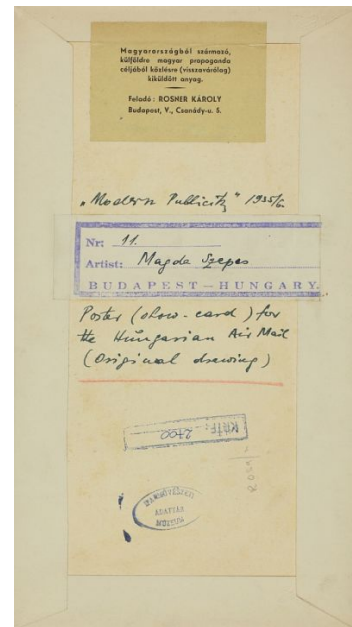 Magyarországból származó,
külföldre magyar propaganda
céljából közlésre (visszavárólag)
kiküldött anyag.
Feladó: ROSNER KÁROLY
Budapest, V., Csanády-u. 5.
„Modern Publicity" 1935/6.
Nr: 11.
Artist: Magda Szepes
BUDAPEST–HUNGARY.
Poster (show-card) for
the Hungarian Air Mail
(Original drawing)
KRTF: 2400
IPARMŰVÉSZETI
ADATTÁR
MÚZEUM